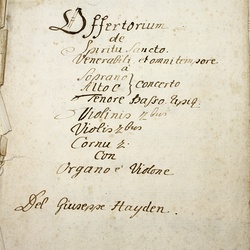 Offertorium
de
Spiritu Sancto.
Venerabili et omni tempore
à
Soprano
Alto C Concerto
Tenore Basso
Violinis 2bus
Violis 2bus
Cornu 2.
Con
Organo e Violone
Del Giuseppe Hayden.